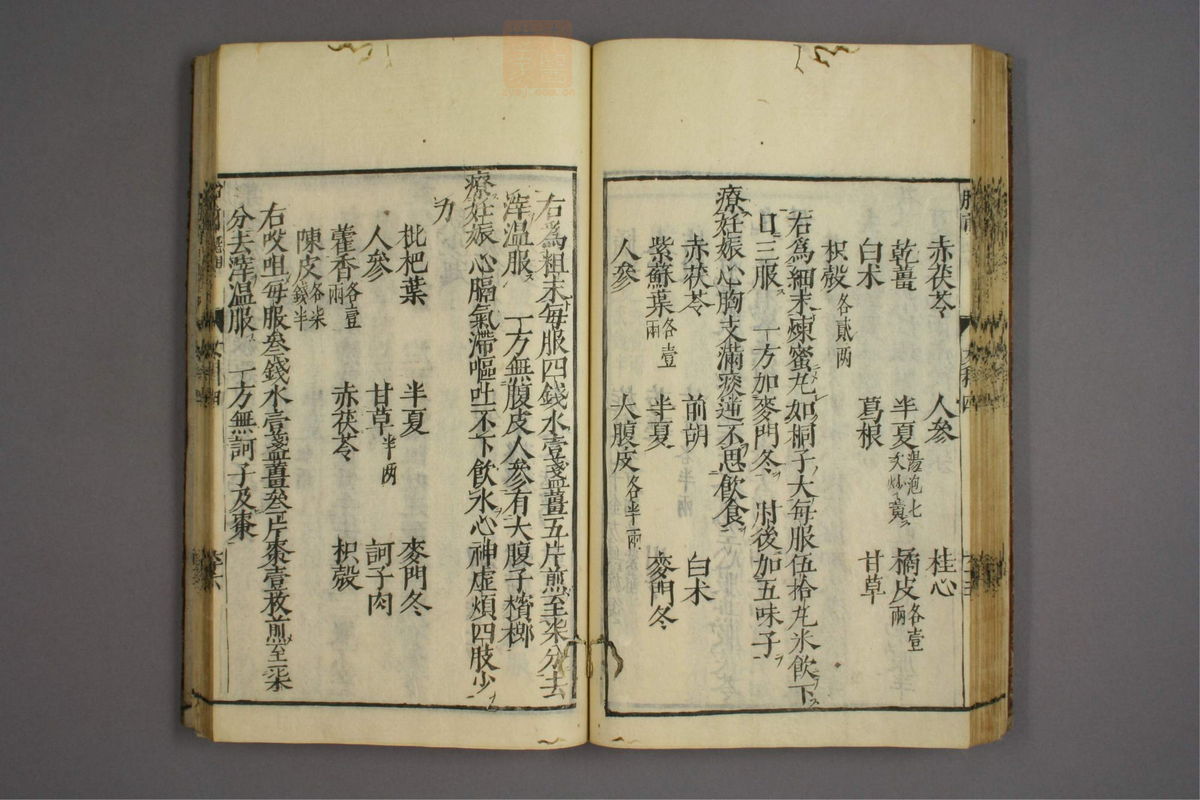 赤茯苓 人參 桂心
乾薑 半夏湯泡七次炒黃 橘皮各壹兩
白术 葛根 甘草
枳殼各貳两
右爲細末煉蜜丸如桐子大每服伍拾丸米飲下
日三服 一方加麥門冬 肘後加五味子
療妊娠心胸支滿痰逆不思飲食
赤茯苓 前胡 白术
紫蘇葉各壹兩 半夏 麥門冬
人參 大腹皮各半兩
右爲粗末每服四錢水壹盞薑五片煎至柒分去
滓温服 一方無腹皮人參有大腹子檳榔
療妊娠心膈氣滯嘔吐不下飲水心神虚煩四肢少
力
枇杷葉 半夏 麥門冬
人參 甘草半两 訶子肉
藿香各壹兩 赤茯苓 枳殼
陳皮各柒錢半
右㕮咀每服叁錢水壹盞薑叁片棗壹枚煎至柒
分去滓温服 一方無訶子及棗